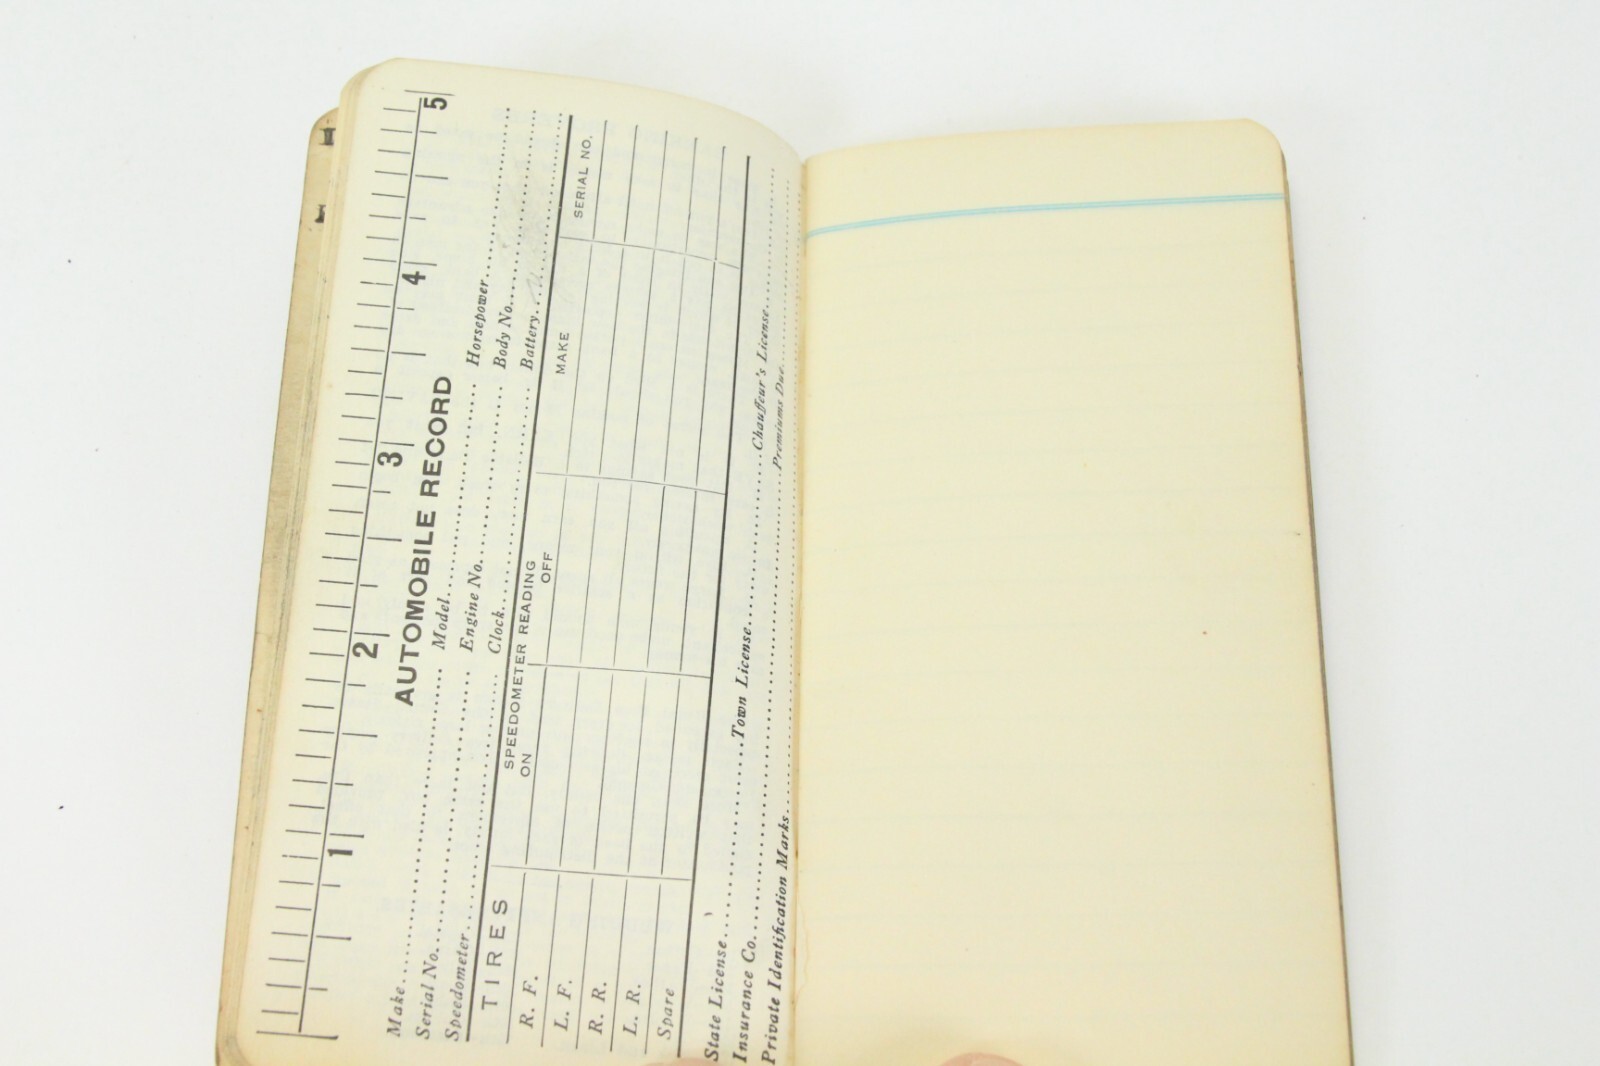 1 2 3 4 5
AUTOMOBILE RECORD
Make.......... Model.......... Horsepower..........
Serial No.......... Engine No.......... Body No..........
Speedometer.......... Clock.......... Battery..........
TIRES SPEEDOMETER READING MAKE SERIAL NO.
ON OFF
R. F.
L. F.
R. R.
L. R.
Spare
State License.......... Town License.......... Chauffeur's License..........
Insurance Co.......... Premiums Due..........
Private Identification Marks..........